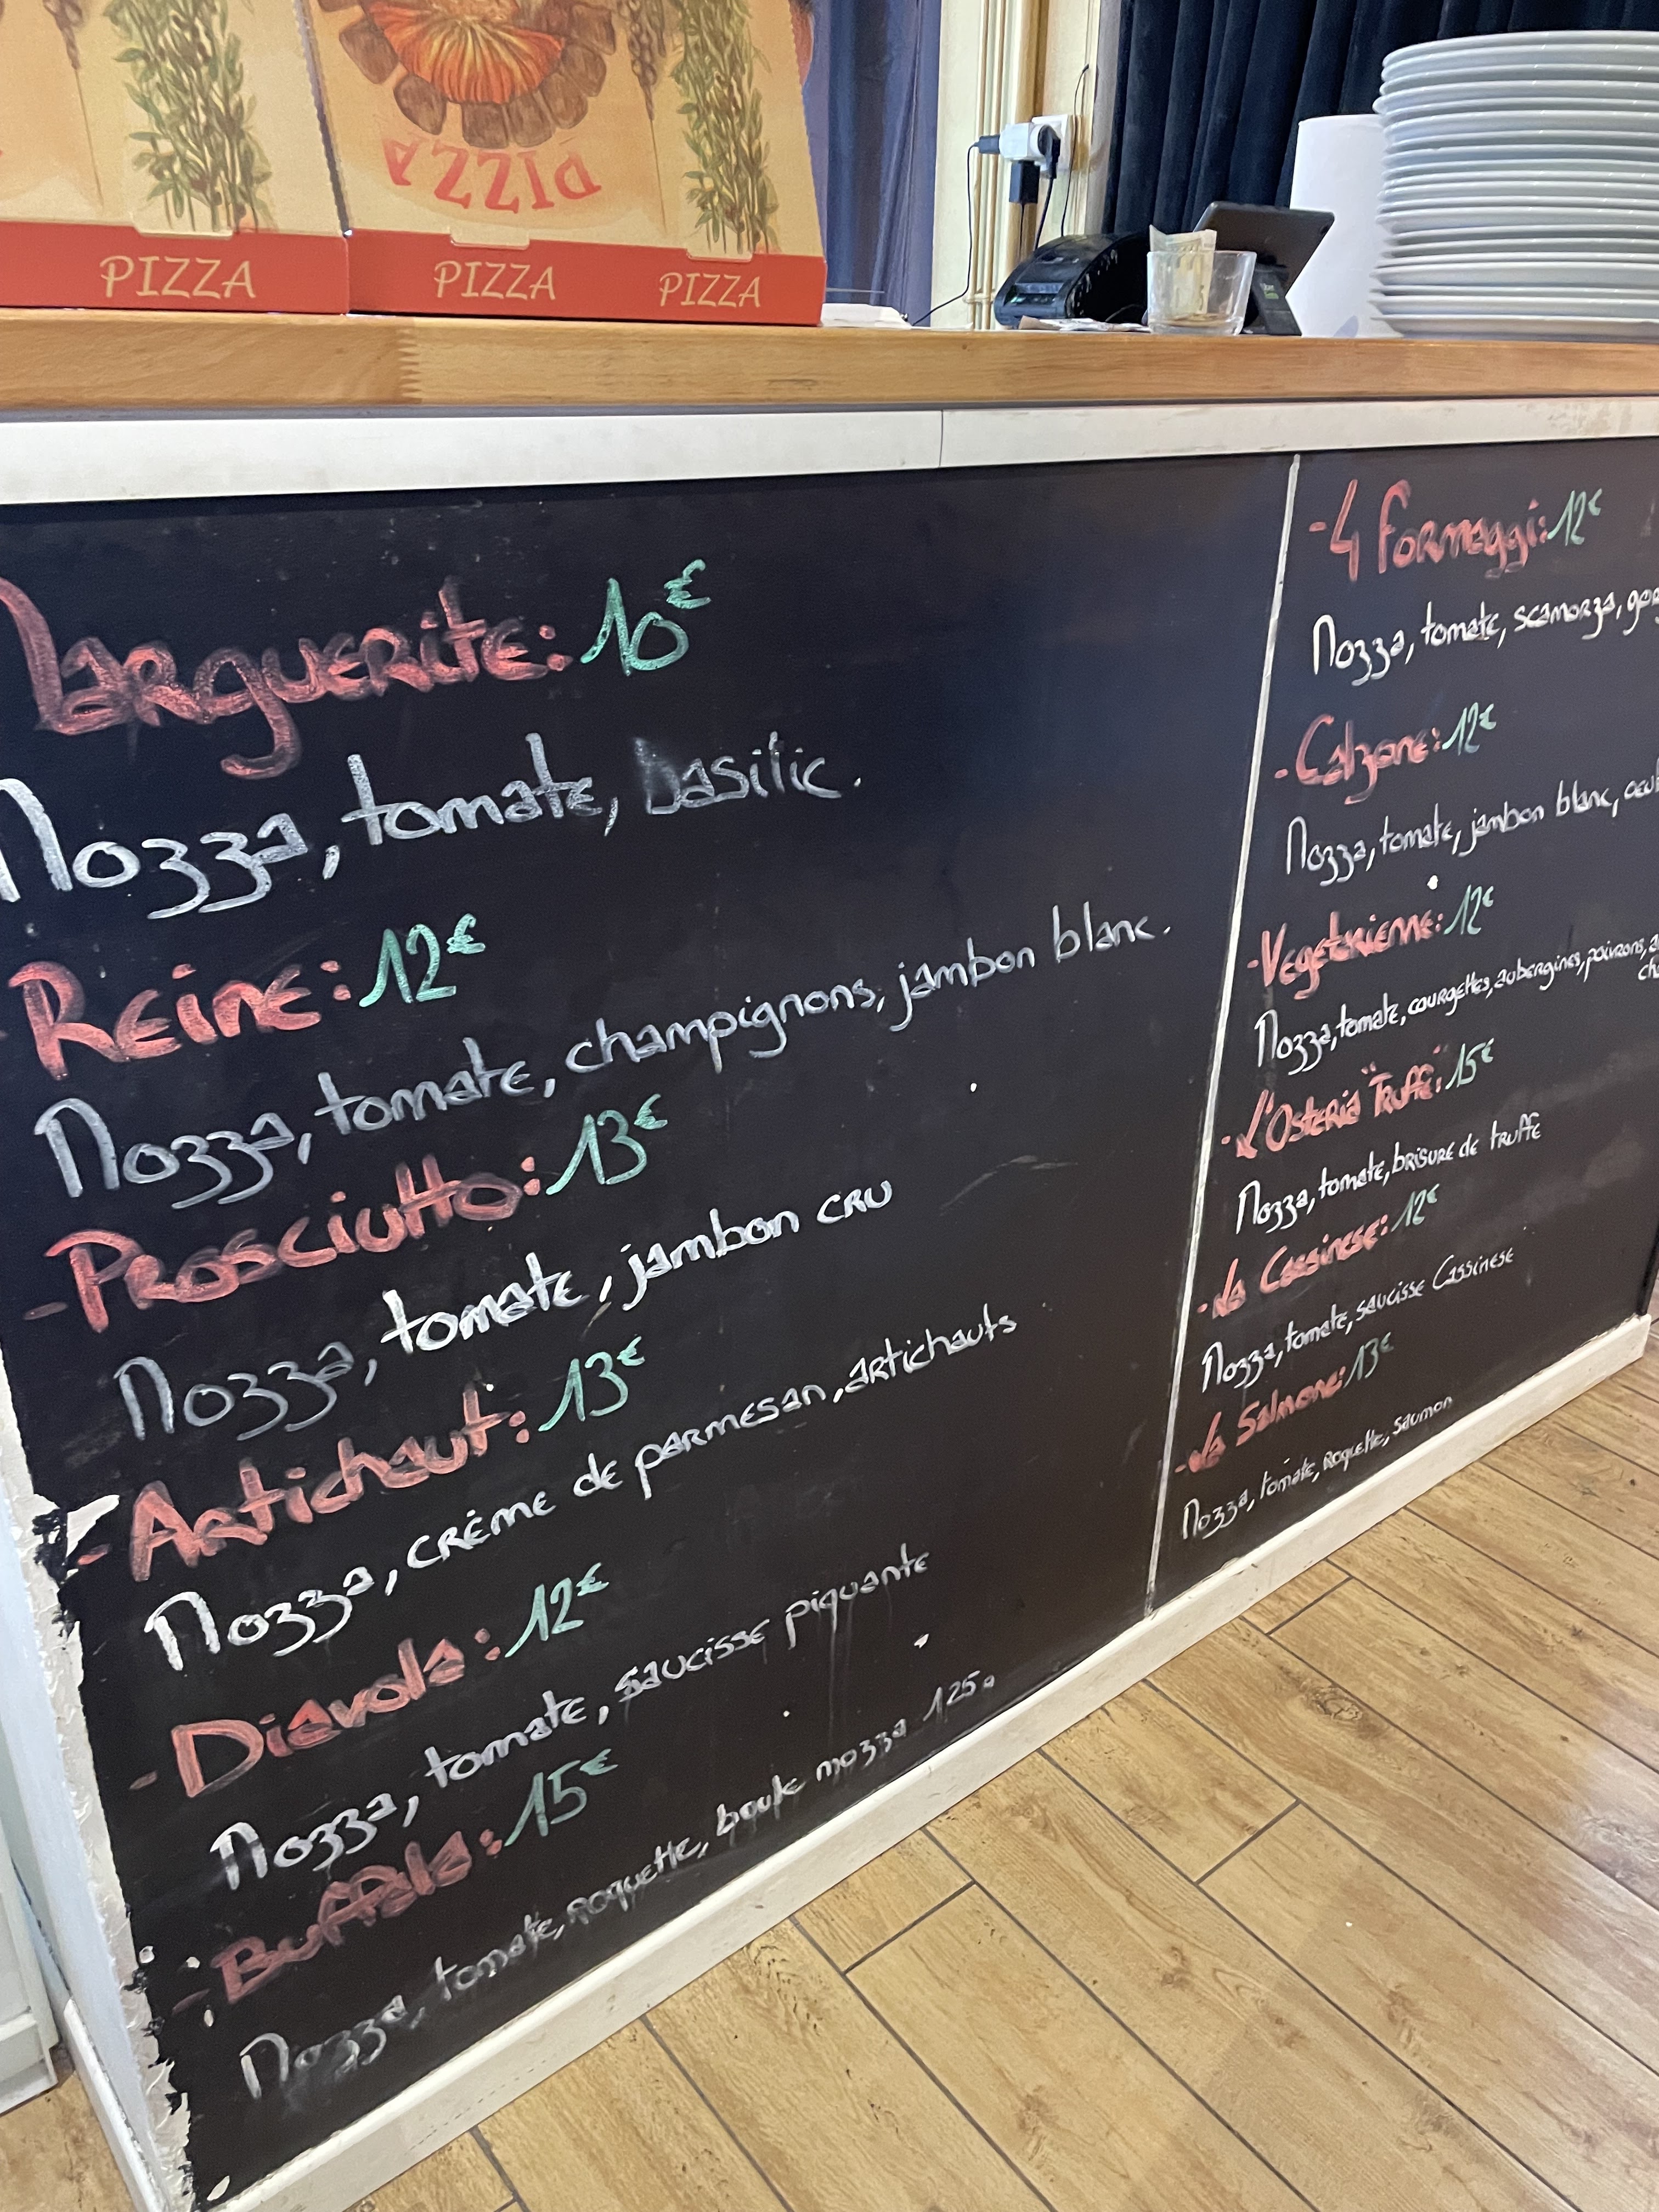 PIZZA
PIZZA
PIZZA
PIZZA
Marguerite: 10€
Mozza, tomate, basilic.
Reine: 12€
Mozza, tomate, champignons, jambon blanc.
- Prosciutto: 13€
Mozza, tomate, jambon cru
- Artichaut: 13€
Mozza, crème de parmesan, artichauts
- Diavola: 12€
Mozza, tomate, saucisse piquante
- Buffala: 15€
Mozza, tomate, roquette, boule mozza 125g
- 4 formaggi: 12€
Mozza, tomate, scamorza, gor
- Calzone: 12€
Mozza, tomate, jambon blanc, oeuf
- Vegetarienne: 12€
Mozza, tomate, courgettes, aubergines, poivrons, a
ch
- L'Osteria "Truffe": 15€
Mozza, tomate, brisure de truffe
- La Cassinese: 12€
Mozza, tomate, saucisse Cassinese
- La Salmone: 13€
Mozza, tomate, roquette, saumon